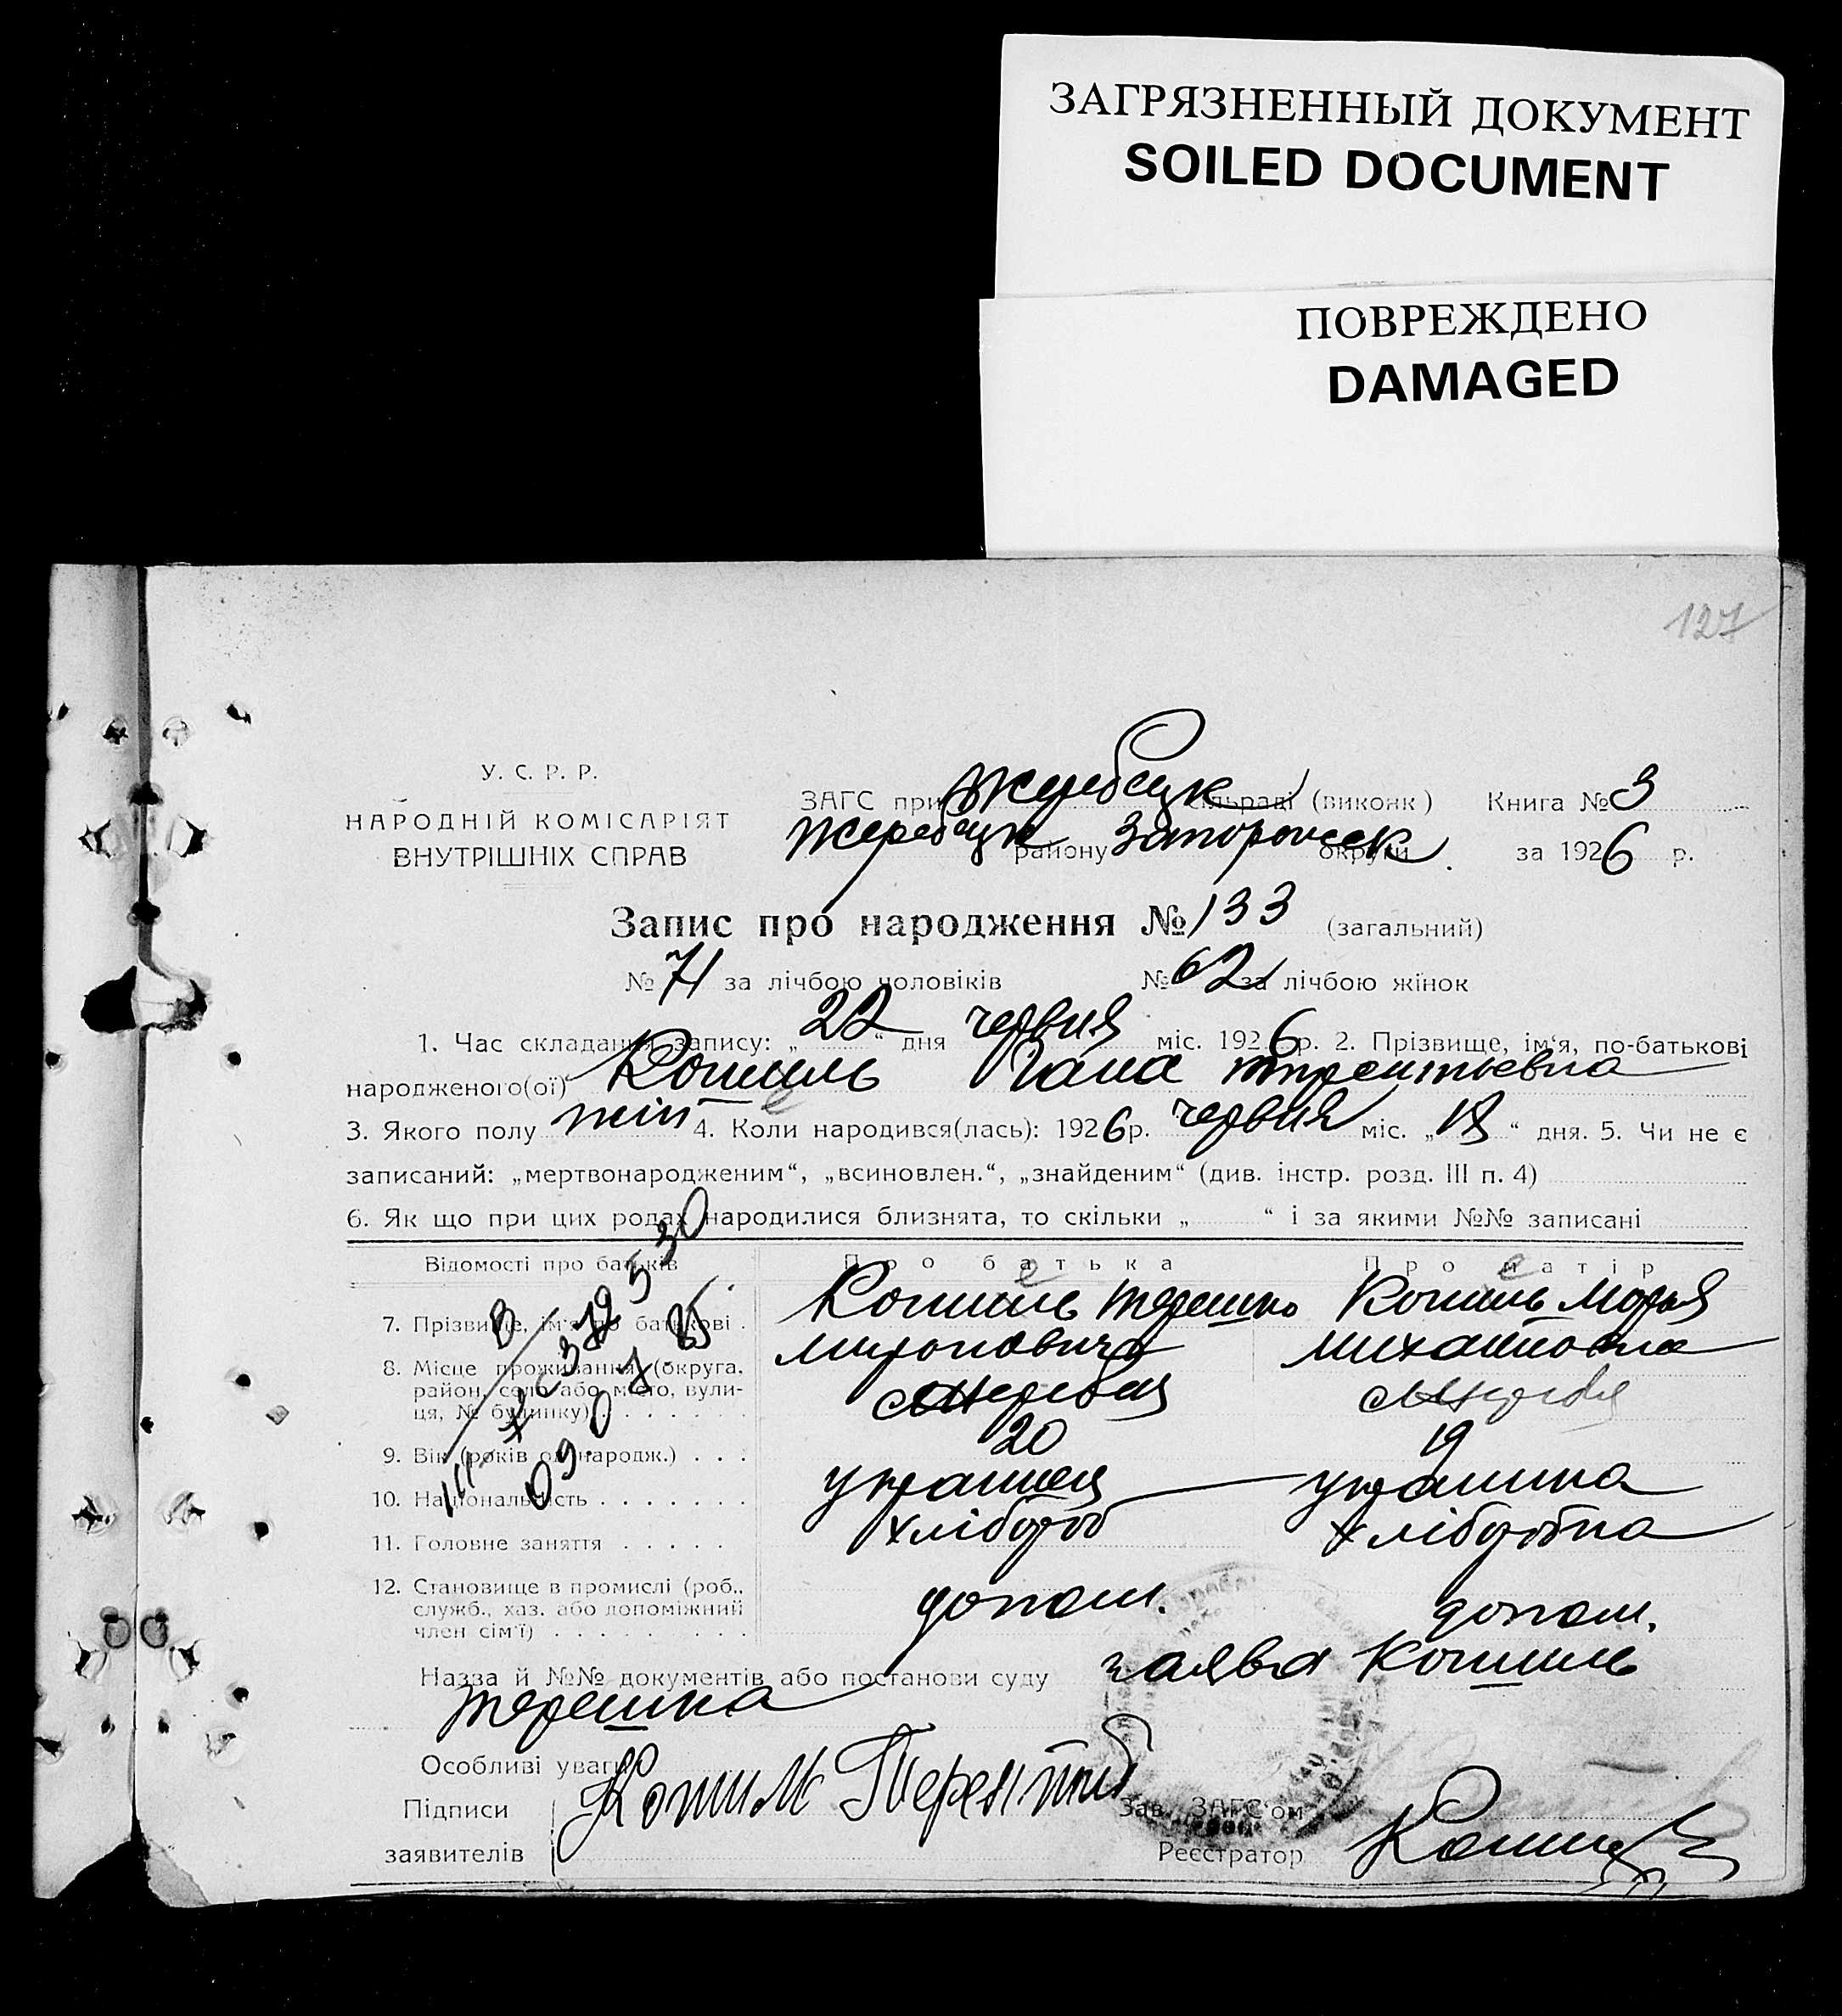 ЗАГРЯЗНЕННЫЙ ДОКУМЕНТ
SOILED DOCUMENT
ПОВРЕЖДЕНО
DAMAGED
127
У. С. Р. Р.
НАРОДНІЙ КОМІСАРІЯТ
ВНУТРІШНІХ СПРАВ
ЗАГС при Жеребецк сільраді (виконк) Книга № 3
Жеребецк району Запорожск округи за 1926 р.
Запис про народження № 133 (загальний)
№ 71 за лічбою чоловіків № 62 за лічбою жінок
1. Час складання запису: „22“ дня червня міс. 1926 р. 2. Прізвище, ім‘я, по-батькові
народженого(ої) Кошиль Гана
3. Якого полу жін 4. Коли народився(лась): 1926 р. червня міс. „18“ дня. 5. Чи не є
записаний: „мертвонародженим“, „всиновлен.“, „знайденим“ (див. інстр. розд. III п. 4)
6. Як що при цих родах народилися близнята, то скільки „ “ і за якими №№ записані
Відомості про батьків Про батька Про матір
7. Прізвище, ім‘я по батькові . Кошиль Терешко Кошиль Марья
Миронович Михайловна
8. Місце проживання (округа,
район, село або місто, вули-
ця, № будинку) . . . . . . .
9. Вік (років од народж.) . . . 20 19
10. Національність . . . . . . . украинец украинка
11. Головне заняття . . . . . хлібороб хліборобка
12. Становище в промислі (роб.,
служб., хаз. або допоміжний
член сім‘ї) . . . . . . . . . допом. допом.
Назва й №№ документів або постанови суду заява Кошиль
Терешка
Особливі уваги
Підписи
заявителів
Зав. ЗАГС‘ом
Реєстратор